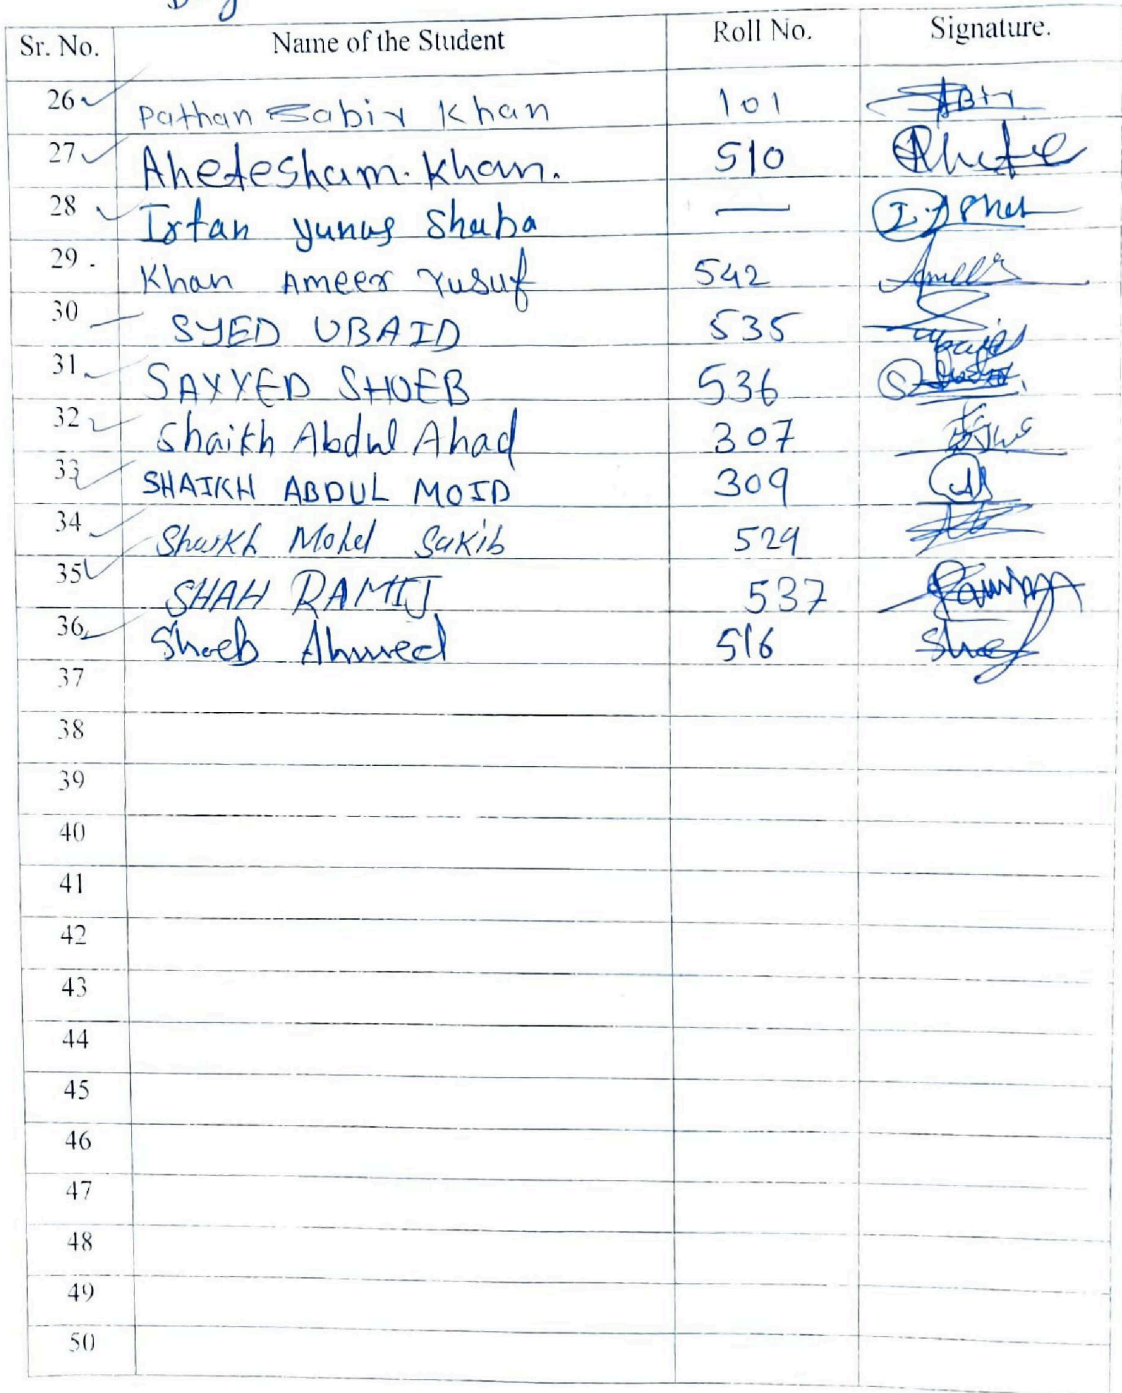 Sr. No. Name of the Student Roll No. Signature.
26 Pathan Sabir Khan 101 SABIr
27 Ahetesham. Khan. 510
28 Irfan yunus Shaba —
29. Khan Ameer Yusuf 542
30 SYED UBAID 535
31. SAYYED SHOEB 536
32 Shaikh Abdul Ahad 307
33 SHAIKH ABDUL MOID 309
34 Shaikh Mohd Sakib 529
35 SHAH RAMIJ 537
36 Shoeb Ahmed 516
37
38
39
40
41
42
43
44
45
46
47
48
49
50